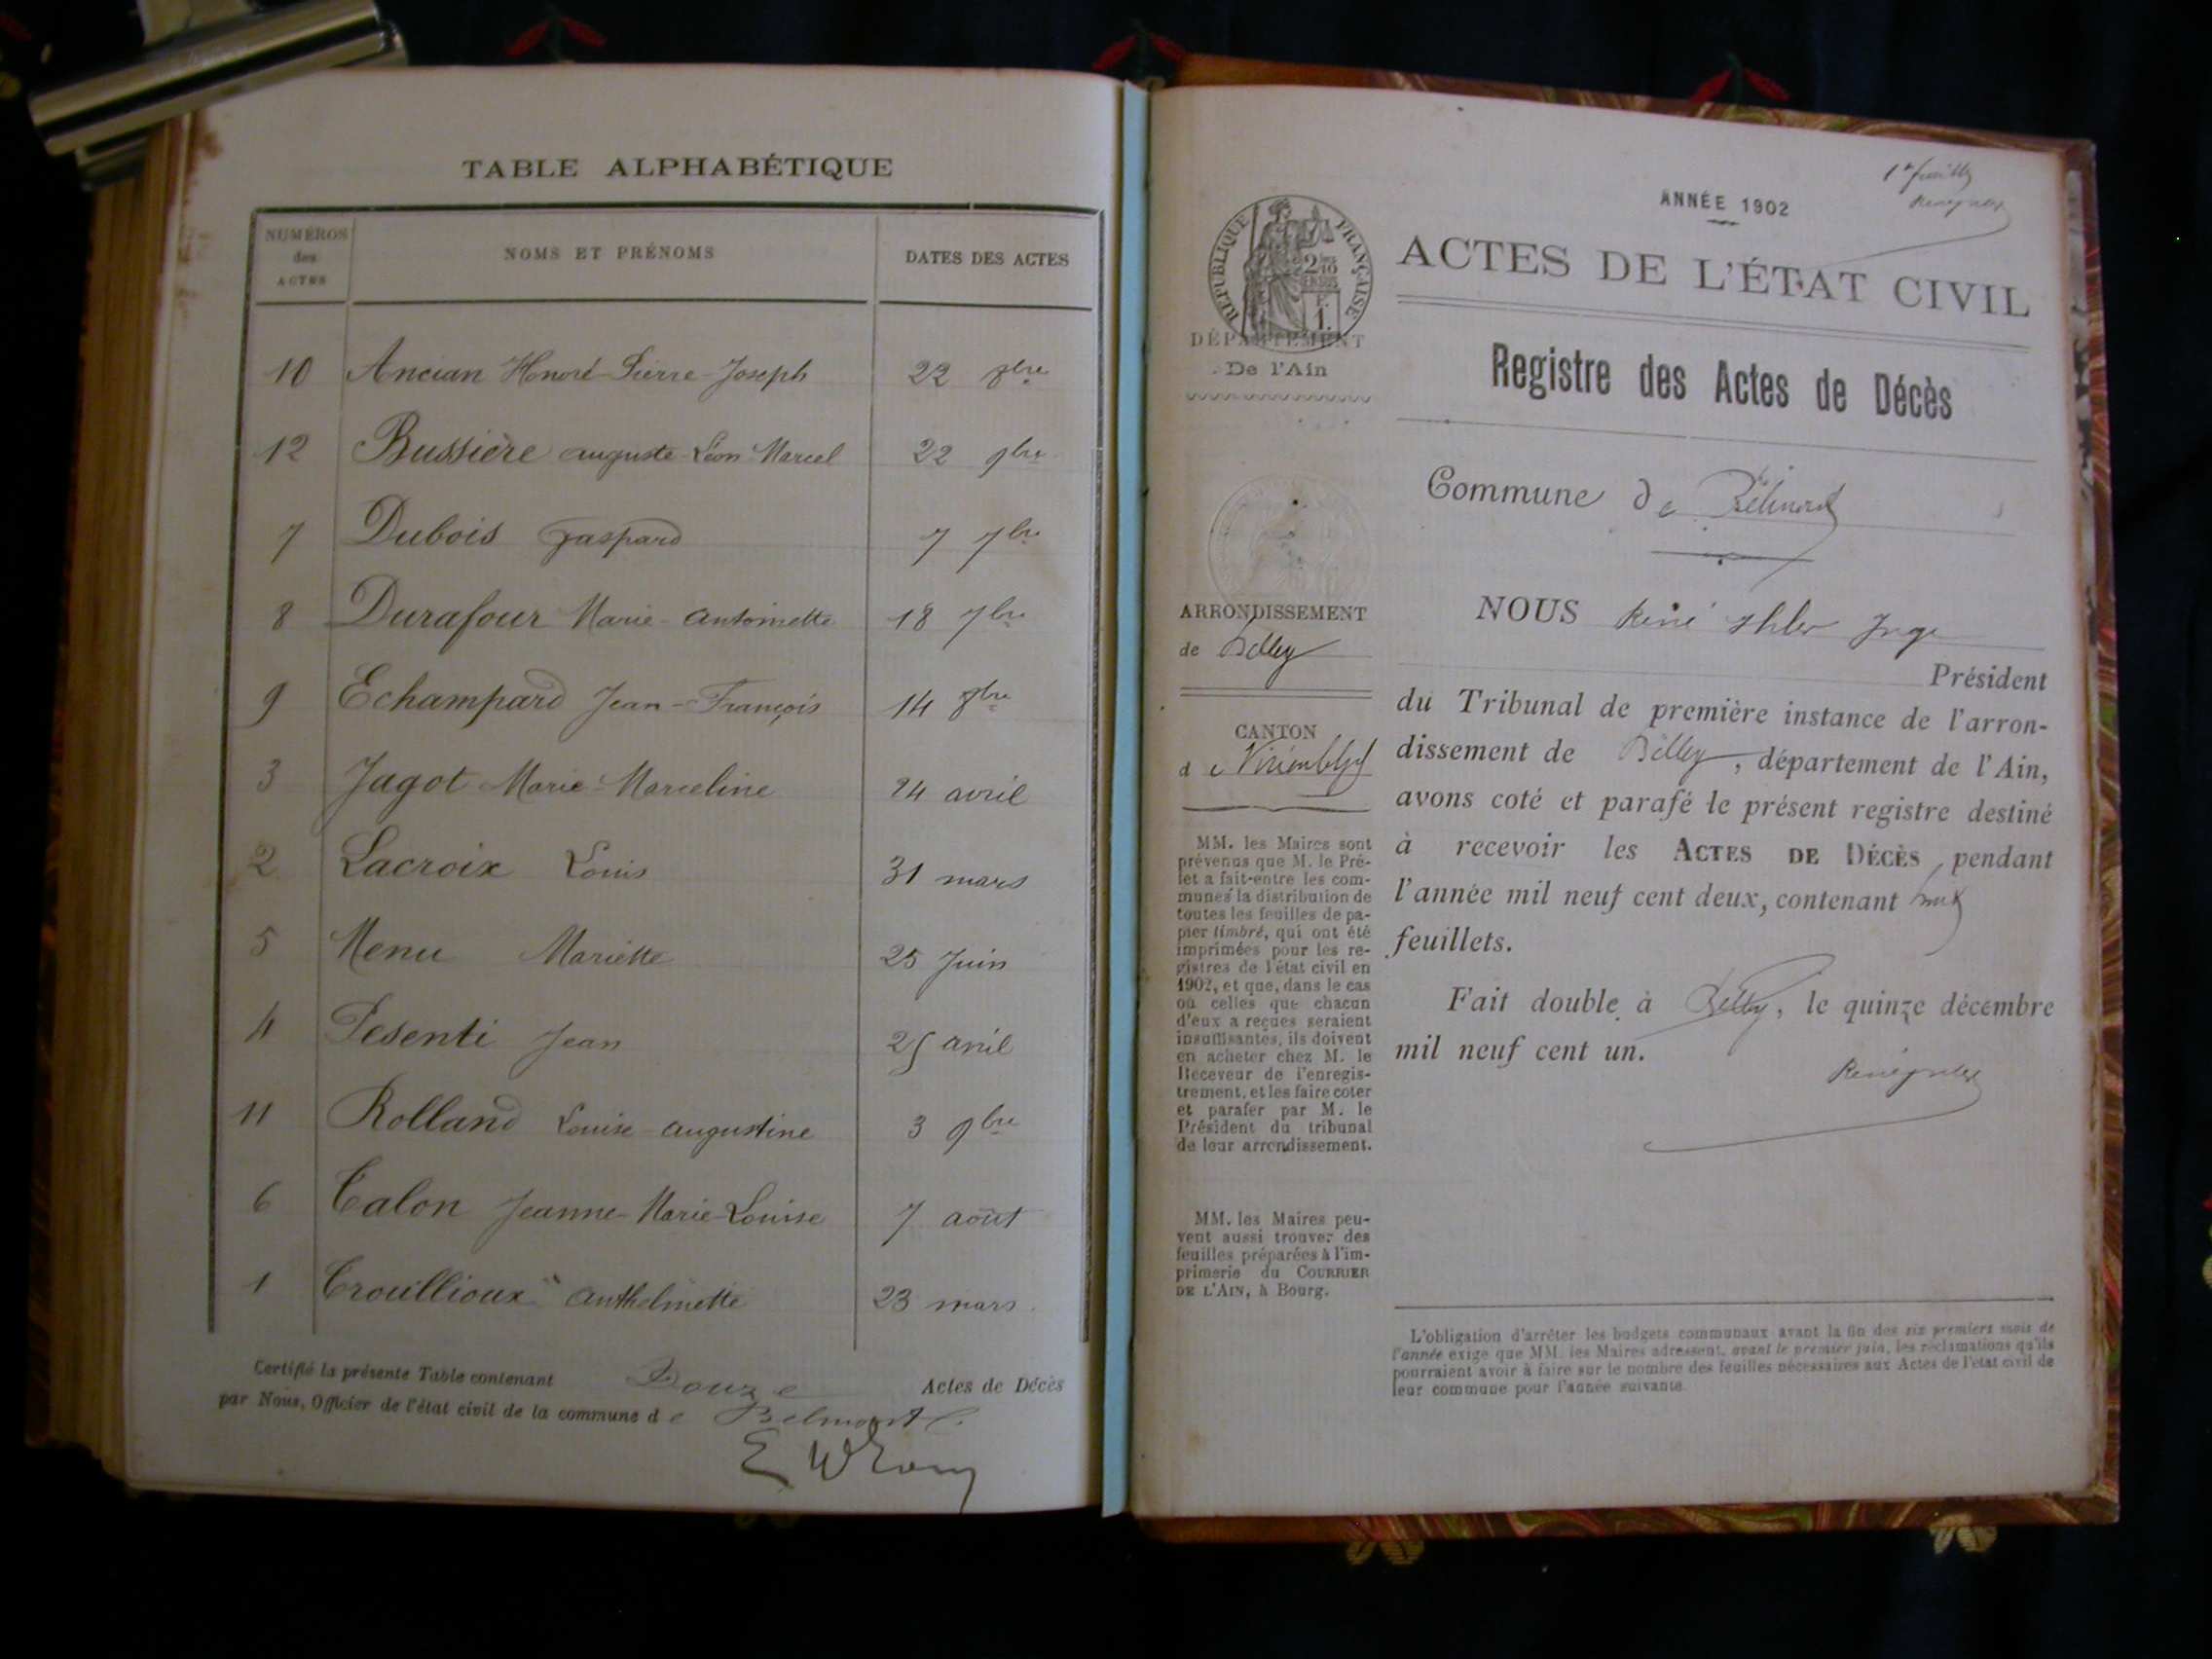 TABLE ALPHABÉTIQUE
NUMÉROS des ACTES
NOMS ET PRÉNOMS
DATES DES ACTES
10 Ancian Honoré-Pierre-Joseph 22 8bre
12 Bussière auguste-Léon-Marcel 22 9bre
7 Dubois Gaspard 7 7bre
8 Durafour Marie-antoinette 18 7bre
9 Echampard Jean-François 14 8bre
3 Jagot Marie-Marceline 24 avril
2 Lacroix Louis 31 mars
5 Menu Mariette 25 Juin
4 Pesenti Jean 25 avril
11 Rolland Louise-augustine 3 9bre
6 Talon Jeanne-Marie-Louise 7 août
1 Trouillioux anthelmette 23 mars
Certifié la présente Table contenant Douze Actes de Décès
par Nous, Officier de l'état civil de la commune de Belmont
1er feuillet
ANNÉE 1902
ACTES DE L'ÉTAT CIVIL
Registre des Actes de Décès
Commune de Belmont
RÉPUBLIQUE FRANÇAISE
DÉPARTEMENT
De l'Ain
ARRONDISSEMENT
de Belley
CANTON
de
MM. les Maires sont
prévenus que M. le Pré-
fet a fait-entre les com-
munes la distribution de
toutes les feuilles de pa-
pier timbré, qui ont été
imprimées pour les re-
gistres de l'état civil en
1902, et que, dans le cas
où celles que chacun
d'eux a reçues seraient
insuffisantes, ils doivent
en acheter chez M. le
Receveur de l'enregis-
trement, et les faire coter
et parafer par M. le
Président du tribunal
de leur arrondissement.
MM. les Maires peu-
vent aussi trouver des
feuilles préparées à l'im-
primerie du COURRIER
DE L'AIN, à Bourg.
NOUS René Juge
Président
du Tribunal de première instance de l'arron-
dissement de Belley, département de l'Ain,
avons coté et parafé le présent registre destiné
à recevoir les ACTES DE DÉCÈS, pendant
l'année mil neuf cent deux, contenant huit
feuillets.
Fait double à Belley, le quinze décembre
mil neuf cent un.
L'obligation d'arrêter les budgets communaux avant la fin des six premiers mois de
l'année exige que MM. les Maires adressent, avant le premier juin, les réclamations qu'ils
pourraient avoir à faire sur le nombre des feuilles nécessaires aux Actes de l'état civil de
leur commune pour l'année suivante.